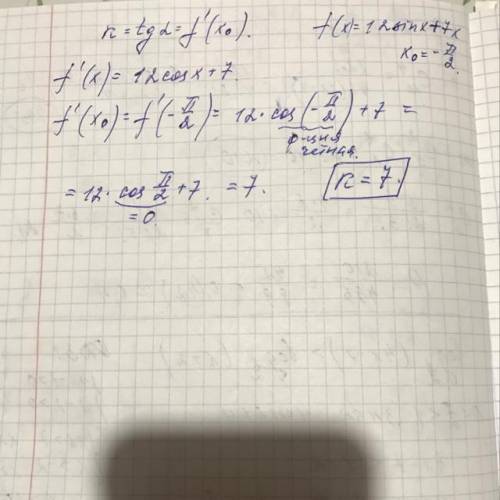 k = tg α = f'(x₀).
f(x) = 12 sin x + 7x
x₀ = -π/2.
f'(x) = 12 cos x + 7.
f'(x₀) = f'(-π/2) = 12 · cos(-π/2) + 7 =
ф-ция
четная.
= 12 · cos π/2 + 7 = 7.
= 0
k = 7.